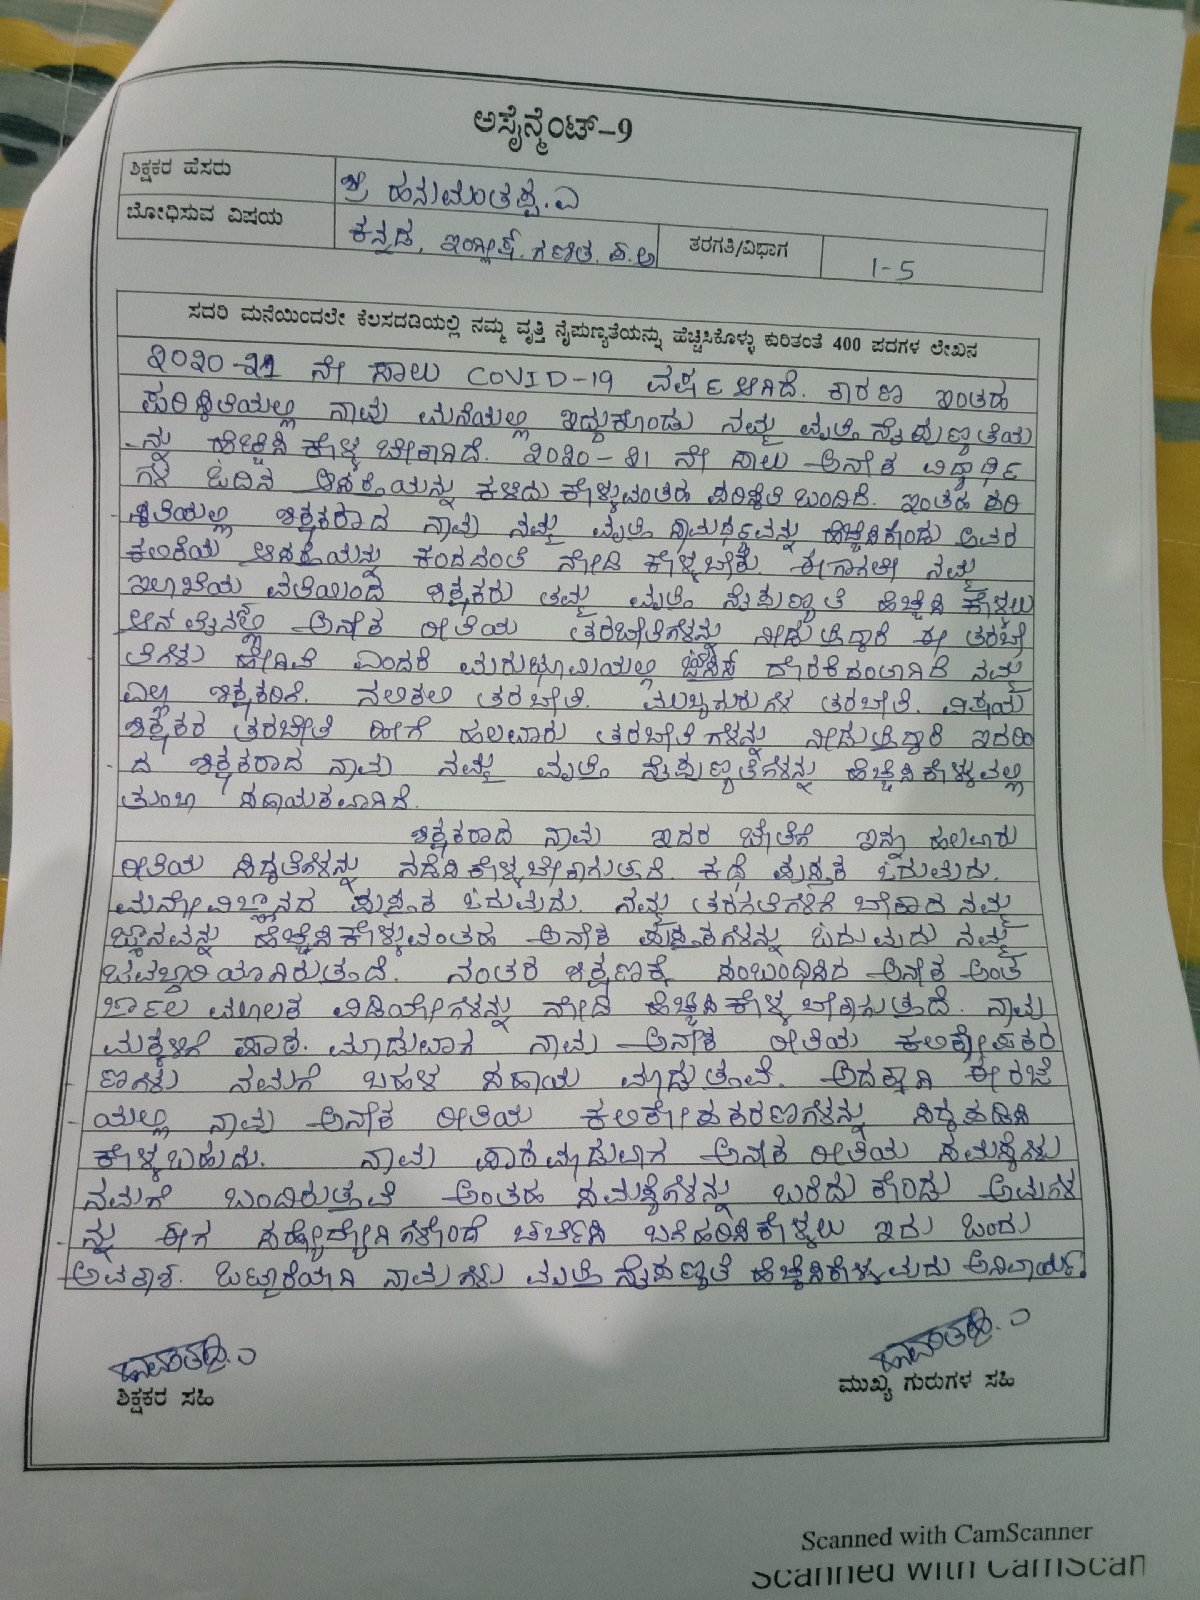 ಅಸೈನ್ಮೆಂಟ್-9
ಶಿಕ್ಷಕರ ಹೆಸರು
ಶ್ರೀ ಹನುಮಂತಪ್ಪ. ಎ
ಬೋಧಿಸುವ ವಿಷಯ
ಕನ್ನಡ, ಇಂಗ್ಲೀಷ್. ಗಣಿತ. ಪ.ಅ
ತರಗತಿ/ವಿಭಾಗ
1-5
ಸದರಿ ಮನೆಯಿಂದಲೇ ಕೆಲಸದಡಿಯಲ್ಲಿ ನಮ್ಮ ವೃತ್ತಿ ನೈಪುಣ್ಯತೆಯನ್ನು ಹೆಚ್ಚಿಸಿಕೊಳ್ಳು ಕುರಿತಂತೆ 400 ಪದಗಳ ಲೇಖನ
೨೦೨೦-೨೧ ನೇ ಸಾಲು COVID-19 ವರ್ಷ ಆಗಿದೆ. ಕಾರಣ ಇಂತಹ
ಪರಿಸ್ಥಿತಿಯಲ್ಲಿ ನಾವು ಮನೆಯಲ್ಲಿ ಇದ್ದುಕೊಂಡು ನಮ್ಮ ವೃತ್ತಿ ನೈಪುಣ್ಯತೆಯ
ನ್ನು ಹೆಚ್ಚಿಸಿ ಕೊಳ್ಳ ಬೇಕಾಗಿದೆ. ೨೦೨೦-೨೧ ನೇ ಸಾಲು ಅನೇಕ ವಿದ್ಯಾರ್ಥಿ
ಗಳ ಓದಿನ ಆಸಕ್ತಿಯನ್ನು ಕಳೆದು ಕೊಳ್ಳುವಂತಹ ಪರಿಸ್ಥಿತಿ ಬಂದಿದೆ. ಇಂತಹ ಪರಿ
ಸ್ಥಿತಿಯಲ್ಲಿ ಶಿಕ್ಷಕರಾದ ನಾವು ನಮ್ಮ ವೃತ್ತಿ ಸಾಮರ್ಥ್ಯವನ್ನು ಹೆಚ್ಚಿಸಿಕೊಂಡು ಅವರ
ಕಲಿಕೆಯ ಆಸಕ್ತಿಯನ್ನು ಕುಂದದಂತೆ ನೋಡಿ ಕೊಳ್ಳಬೇಕು. ಈಗಾಗಲೇ ನಮ್ಮ
ಇಲಾಖೆಯ ವತಿಯಿಂದ ಶಿಕ್ಷಕರು ತಮ್ಮ ವೃತ್ತಿ ನೈಪುಣ್ಯತೆ ಹೆಚ್ಚಿಸಿ ಕೊಳ್ಳಲು
ಆನ್ ಲೈನಲ್ಲಿ ಅನೇಕ ರೀತಿಯ ತರಬೇತಿಗಳನ್ನು ನೀಡುತ್ತಿದ್ದಾರೆ ಈ ತರಬೇ
ತಿಗಳು ಹೇಗಿವೆ ಎಂದರೆ ಮರುಭೂಮಿಯಲ್ಲಿ ದೊರಕಿದಂತಾಗಿದೆ ನಮ್ಮ
ಎಲ್ಲ ಶಿಕ್ಷಕರಿಗೆ. ನಲಿಕಲಿ ತರಬೇತಿ. ಮುಖ್ಯಗುರುಗಳ ತರಬೇತಿ. ವಿಷಯ
ಶಿಕ್ಷಕರ ತರಬೇತಿ ಹೀಗೆ ಹಲವಾರು ತರಬೇತಿಗಳನ್ನು ನೀಡುತ್ತಿದ್ದಾರೆ ಇದರಿಂ
ದ ಶಿಕ್ಷಕರಾದ ನಾವು ನಮ್ಮ ವೃತ್ತಿ ನೈಪುಣ್ಯತೆಗಳನ್ನು ಹೆಚ್ಚಿಸಿಕೊಳ್ಳುವಲ್ಲಿ
ತುಂಬಾ ಸಹಾಯಕವಾಗಿದೆ.
ಶಿಕ್ಷಕರಾದ ನಾವು ಇದರ ಜೊತೆಗೆ ಇನ್ನೂ ಹಲವಾರು
ರೀತಿಯ ಸಿದ್ಧತೆಗಳನ್ನು ನಡೆಸಿಕೊಳ್ಳಬೇಕಾಗುತ್ತದೆ. ಕಥೆ ಪುಸ್ತಕ ಓದುವುದು.
ಮನೋವಿಜ್ಞಾನದ ಪುಸ್ತಕ ಓದುವುದು. ನಮ್ಮ ತರಗತಿಗಳಿಗೆ ಬೇಕಾದ ನಮ್ಮ
ಜ್ಞಾನವನ್ನು ಹೆಚ್ಚಿಸಿಕೊಳ್ಳುವಂತಹ ಅನೇಕ ಪುಸ್ತಕಗಳನ್ನು ಓದುವುದು ನಮ್ಮ
ಜವಬ್ದಾರಿಯಾಗಿರುತ್ತದೆ. ನಂತರ ಶಿಕ್ಷಣಕ್ಕೆ ಸಂಬಂಧಿಸಿದ ಅನೇಕ ಅಂತ
ರ್ಜಾಲ ಮೂಲಕ ವಿಡಿಯೋಗಳನ್ನು ನೋಡಿ ಹೆಚ್ಚಿಸಿಕೊಳ್ಳ ಬೇಕಾಗುತ್ತದೆ. ನಾವು
ಮಕ್ಕಳಿಗೆ ಪಾಠ ಮಾಡುವಾಗ ನಾವು ಅನೇಕ ರೀತಿಯ ಕಲಿಕೋಪಕರ
ಣಗಳು ನಮಗೆ ಬಹಳ ಸಹಾಯ ಮಾಡುತ್ತವೆ. ಅದಕ್ಕಾಗಿ ಈ ರಜೆ
ಯಲ್ಲಿ ನಾವು ಅನೇಕ ರೀತಿಯ ಕಲಿಕೋಪಕರಣಗಳನ್ನು ಸಿದ್ಧಪಡಿಸಿ
ಕೊಳ್ಳಬಹುದು. ನಾವು ಪಾಠಮಾಡುವಾಗ ಅನೇಕ ರೀತಿಯ ಸಮಸ್ಯೆಗಳು
ನಮಗೆ ಬಂದಿರುತ್ತವೆ ಅಂತಹ ಸಮಸ್ಯೆಗಳನ್ನು ಬರೆದು ಕೊಂಡು ಅವುಗಳ
ನ್ನು ಈಗ ಚರ್ಚಿಸಿ ಬಗೆಹರಿಸಿಕೊಳ್ಳಲು ಇದು ಒಂದು
ಅವಕಾಶ. ಒಟ್ಟಾರೆಯಾಗಿ ನಾವುಗಳು ವೃತ್ತಿ ನೈಪುಣ್ಯತೆ ಹೆಚ್ಚಿಸಿಕೊಳ್ಳುವುದು ಅನಿವಾರ್ಯ.
ಶಿಕ್ಷಕರ ಸಹಿ
ಮುಖ್ಯ ಗುರುಗಳ ಸಹಿ
Scanned with CamScanner
Scanned with CamScan